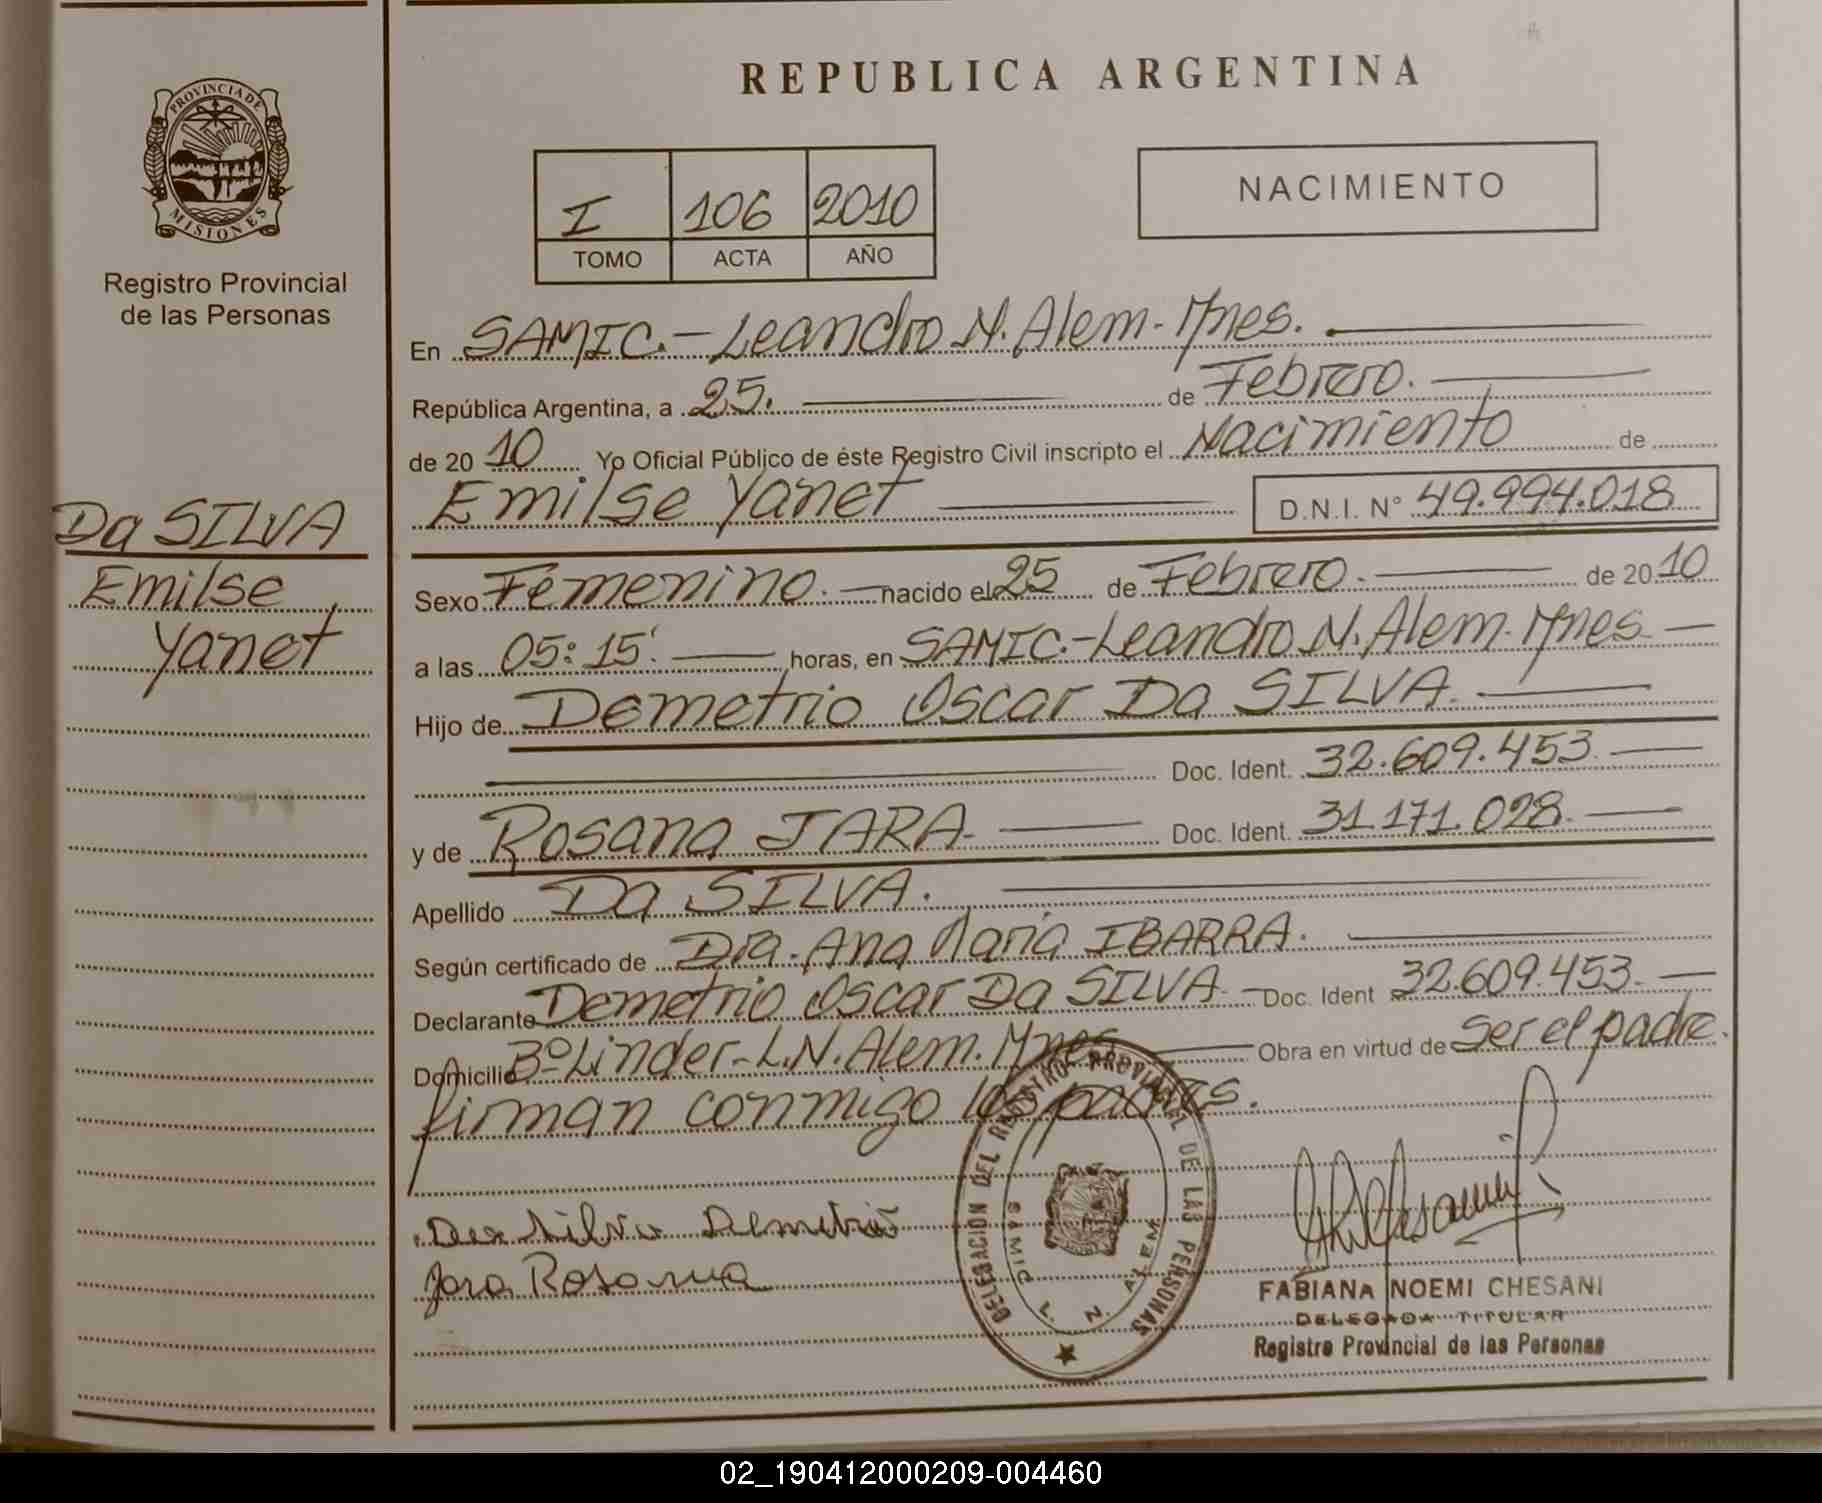 REPUBLICA ARGENTINA
PROVINCIA DE
MISIONES
Registro Provincial
de las Personas
I 106 2010
TOMO ACTA AÑO
NACIMIENTO
En SAMIC.- Leandro N. Alem - Mnes.
República Argentina, a 25. de Febrero.
de 20 10 Yo Oficial Público de éste Registro Civil inscripto el Nacimiento de
Emilse Yanet D.N.I. N° 49.994.018
Da SILVA
Emilse
Yanet
Sexo Femenino. nacido el 25 de Febrero. de 20 10
a las 05:15' horas, en SAMIC.- Leandro N. Alem. Mnes
Hijo de Demetrio Oscar Da SILVA.
Doc. Ident. 32.609.453
y de Rosana JARA Doc. Ident. 31.171.028
Apellido Da SILVA.
Según certificado de Dra. Ana María IBARRA.
Declarante Demetrio Oscar Da SILVA Doc. Ident 32.609.453.
Domicilio B° Linder - L.N. Alem. Mnes Obra en virtud de Ser el padre.
firman conmigo los padres.
DELEGACIÓN DEL REGISTRO PROVINCIAL DE LAS PERSONAS
SAMIC L. N. ALEM
Da Silva Demetrio
Jara Rosana
FABIANA NOEMI CHESANI
DELEGADA TITULAR
Registro Provincial de las Personas
02_190412000209-004460